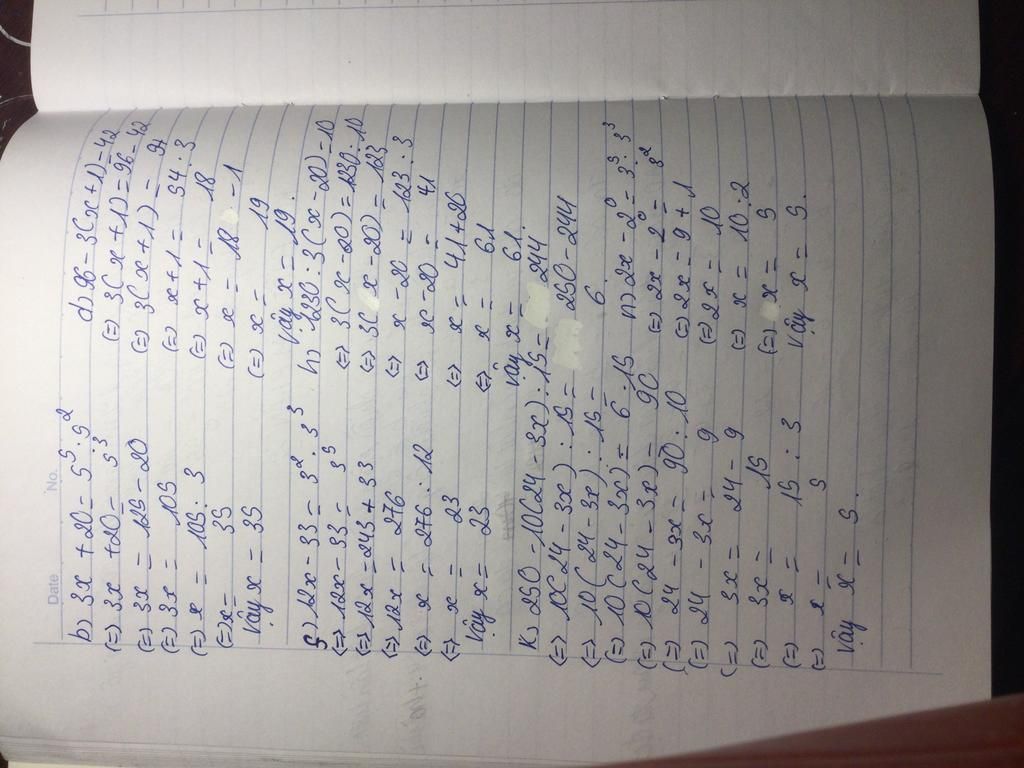 Date No.
b) 3x + 20 = 5⁵ : 5²
(=) 3x + 20 = 5³
(=) 3x = 125 - 20
(=) 3x = 105
(=) x = 105 : 3
(=) x = 35
Vậy x = 35
d) 96 - 3(x + 1) = 42
(=) 3(x + 1) = 96 - 42
(=) 3(x + 1) = 54
(=) x + 1 = 54 : 3
(=) x + 1 = 18
(=) x = 18 - 1
(=) x = 19
Vậy x = 19.
g) 12x - 33 = 3² . 3³
(=) 12x - 33 = 3⁵
(=) 12x = 243 + 33
(=) 12x = 276
(=) x = 276 : 12
(=) x = 23
Vậy x = 23
h) 1230 : 3(x - 20) = 10
(=) 3(x - 20) = 1230 : 10
(=) 3(x - 20) = 123
(=) x - 20 = 123 : 3
(=) x - 20 = 41
(=) x = 41 + 20
(=) x = 61
Vậy x = 61.
k) 250 - 10(24 - 3x) : 15 = 244
(=) 10(24 - 3x) : 15 = 250 - 244
(=) 10(24 - 3x) : 15 = 6
(=) 10(24 - 3x) = 6 . 15
(=) 10(24 - 3x) = 90
(=) 24 - 3x = 90 : 10
(=) 24 - 3x = 9
(=) 3x = 24 - 9
(=) 3x = 15
(=) x = 15 : 3
(=) x = 5
Vậy x = 5.
n) 2x - 2⁰ = 3⁵ : 3³
(=) 2x - 2⁰ = 3²
(=) 2x = 9 + 1
(=) 2x = 10
(=) x = 10 : 2
(=) x = 5
Vậy x = 5.